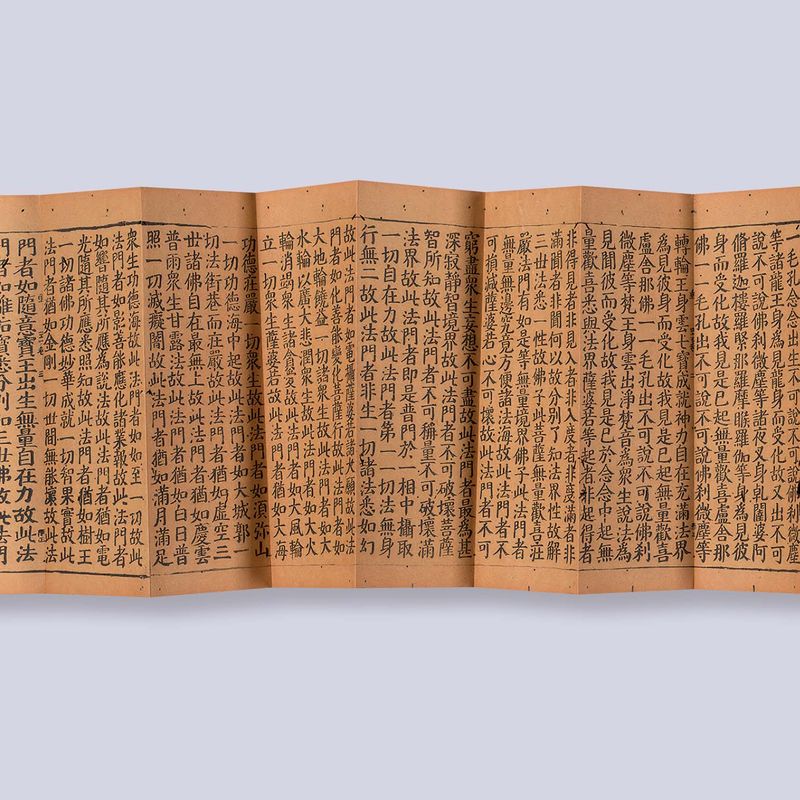 一毛孔出不可說不可說佛利微塵
等諸龍王身爲見龍身而受化故又出不可
說不可說佛利微塵等諸夜叉身乳闥婆阿
脩羅迦樓羅緊那羅摩睺羅伽等身為見彼
身而受化故我見是已起無量歡喜盧舍那
佛一一毛孔出不可說不可說佛利微塵等
轉輪王身雲七寶成就神力自在充滿法界
為見彼身而受化故我見是已起無量歡喜
盧舍那佛一一毛孔出不可說不可說佛利
微塵等梵王身雲出淨梵音為衆生說法為
見聞彼而受化故我見是已於念念中起無
量歡喜悉與法界薩婆若等起者非起得者
非得見者非見入者非入度者非度滿者非
滿聞者非聞何以故分別了知法界性故解
三世法悉一性故佛子此菩薩無量歡喜莊
嚴法門有如是等無量境界佛子此法門者
無量無邊究竟方便諸法海故此法門者不
可損減薩婆若心不可壞故此法門者不可
窮盡衆生妄想不可盡故此法門者最為甚
深寂靜智境界故此法門者不可破壞菩薩
智所知故此法門者不可稱量不可破壞滿
法界故此法門者即是普門於一相中攝取
一切自在力故此法門者第一一切法無身
行無二故此法門者非生一切諸法悉如幻
故此法門者如電像薩婆若諸大願故此法
門者如化菩能變化菩薩行故此法門者如
大地輪饒益一切諸衆生故此法門者如大
水輪以廣大悲潤衆生故此法門者如大火
輪消竭衆生諸貪愛故此法門者如大風輪
立一切衆生薩婆若故此法門者如大海
功德莊嚴一切衆生故此法門者如須弥山
一切功德海中起故此法門者如大城郭一
切法街巷而莊嚴故此法門者猶如虛空三
世諸佛自在最無上故此法門者猶如慶雲
普雨衆生甘露法故此法門者猶如白日普
照一切滅癡闇故此法門者猶如滿月滿足
衆生功德海故此法門者如如至一切故此
法門者如影菩能應化諸業報故此法門者
如響隨其所應為說法故此法門者猶如電
光隨其所應悉照知故此法門者猶如樹王
一切諸佛功德妙華成就一切智果實故此
法門者猶如金剛一切世間無能壞故此法
門者如隨意寶王出生無量自在力故此法
門者如離垢寶悉分別知三世佛故此法門